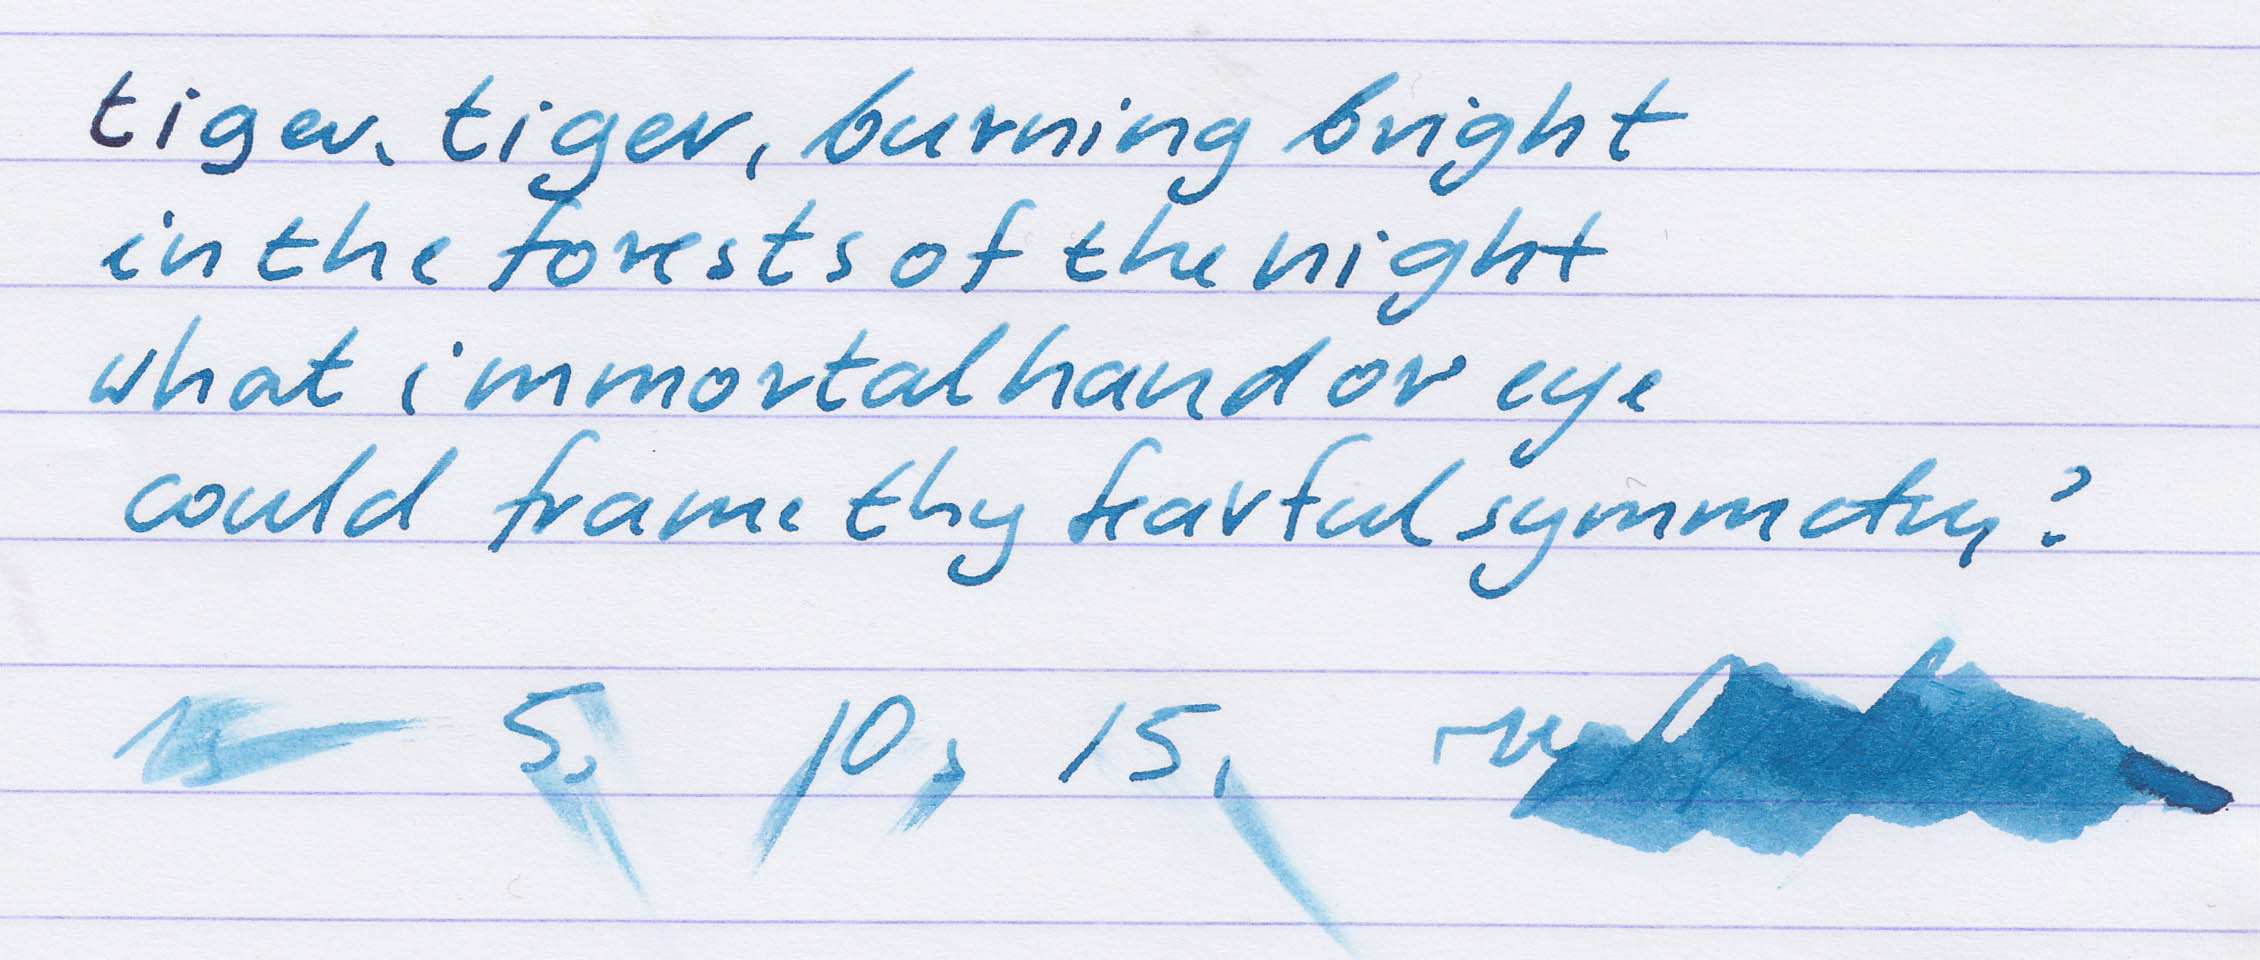 tiger, tiger, burning bright
in the forests of the night
what immortal hand or eye
could frame thy fearful symmetry?
1s 5, 10, 15,